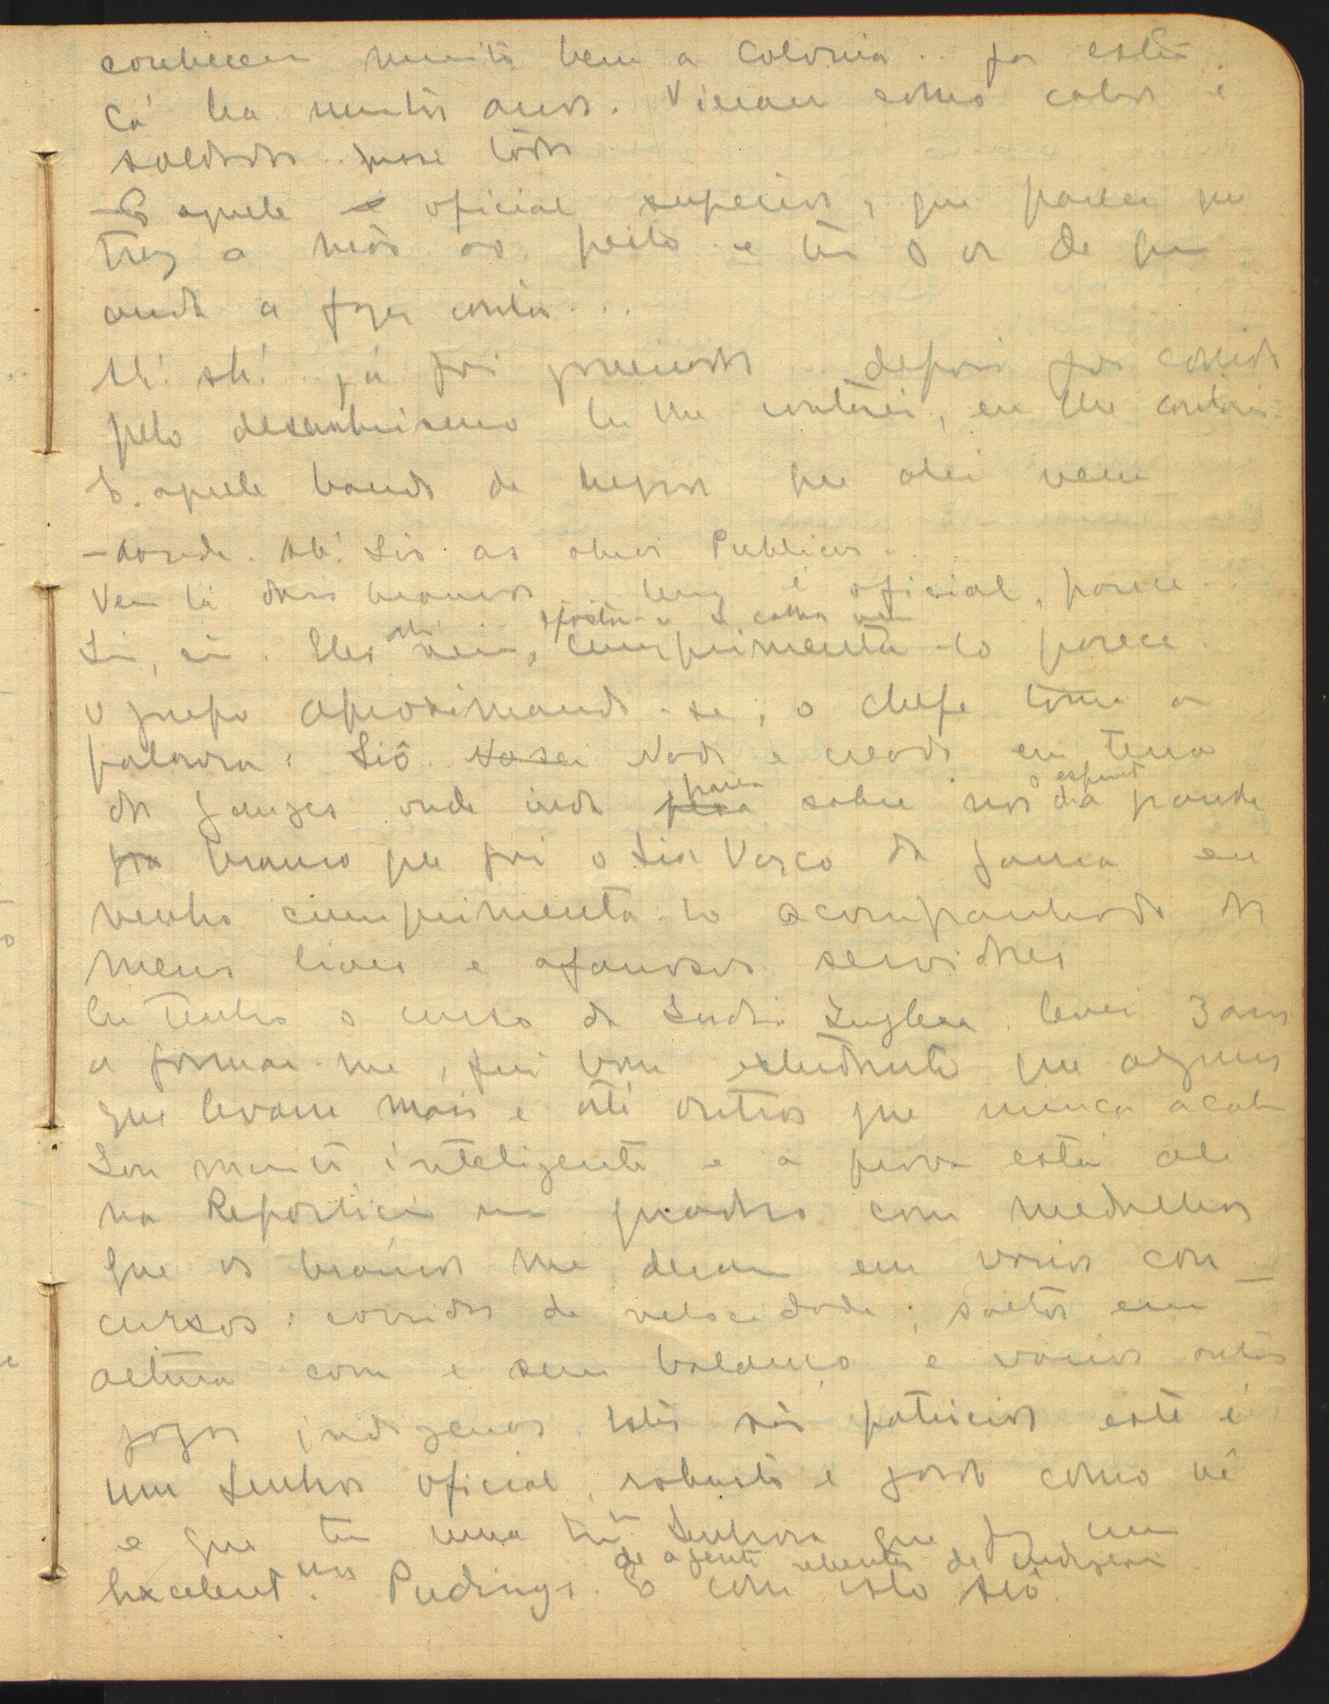 conhecem muito bem a Colonia.. ja estão
cá ha muitos anos. Vieram como cabos e
soldados quase todos
– E aquele oficial superior, que parece que
traz a mão ao peito e tem o ar de quem
anda a fazer contas...
Ah! ah! já foi .. depois foi corrido
pelo eu lhe contarei, eu lhe contarei.
E aquele bando de negros que ali vem
– donde. Ah! São as obras Publicas..
Vem lá dois brancos .. um é oficial, parece...
Sim, sim. Eles vem, cumprimenta-lo parece.
o grupo aproximando-se; o chefe toma a
palavra: Siô Nado e creado em terra
do onde inda paira sobre nos o espirito da grande
branco que foi o Siô Vasco da Gama eu
venho cumprimenta-lo acompanhado dos
meus leaes e afanosos servidores
Eu tenho o curso da India Inglesa levei 3 anos
a formar-me, fui bom estudante que alguns
que levam mais e até outros que nunca acabam
Sou muito inteligente e a prova está ali
na Repartição um quadro com medalhas
que os brancos me deram em varios con–
cursos: corridas de velocidade; saltos em
altura com e sem balanço e varios outros
jogos indigenas. Estes são patricios este é
um Senhor oficial, robusto e gordo como vê
e que tem uma Senhora que faz uns
Excelent. Pudings de a gente rebentar de indigestão. E com isto siô